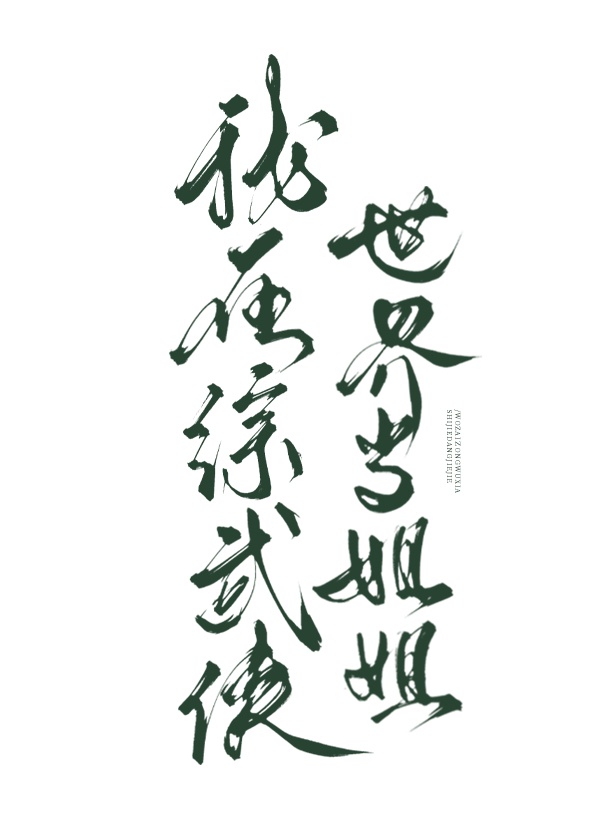 我在综武侠
世界当姐姐
/WOZAIZONGWUXIA
SHIJIEDANGJIEJIE